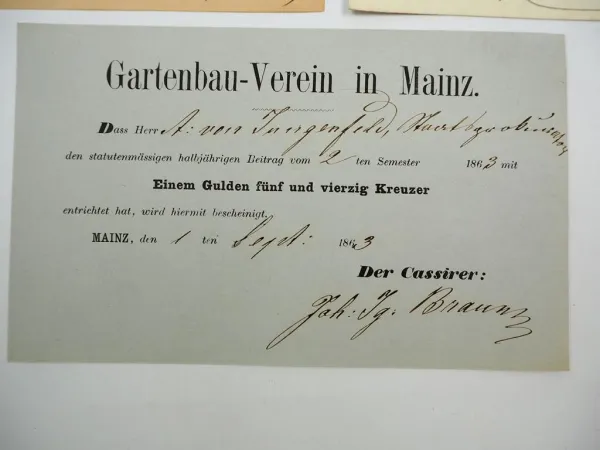 Gartenbau-Verein in Mainz.
Dass Herr A: von Jungenfeld, Staatsprokurator
den statutenmässigen halbjährigen Beitrag vom 2 ten Semester 1863 mit
Einem Gulden fünf und vierzig Kreuzer
entrichtet hat, wird hiermit bescheinigt.
MAINZ, den 1 ten Sept: 1863
Der Cassirer:
Joh: Ig. Braun